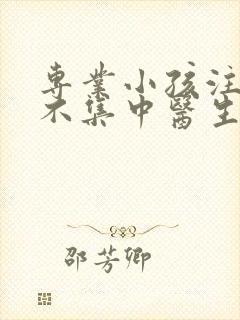 專業小孩注
不集中醫生
邵芳卿